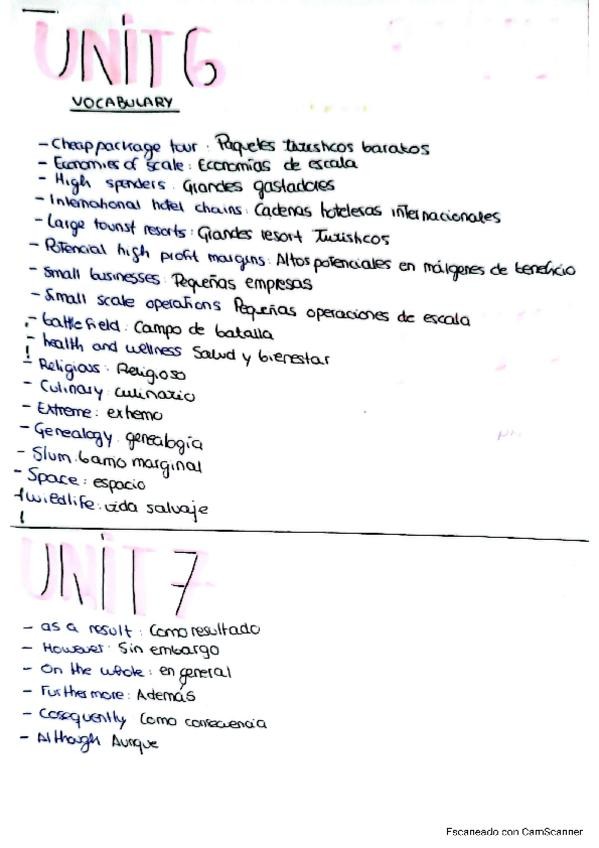 UNIT 6
VOCABULARY
- Cheap package tour: Paquetes turísticos baratos
- Economies of scale: Economías de escala
- High spenders: Grandes gastadores
- International hotel chains: Cadenas hoteleras internacionales
- Large tourist resorts: Grandes resort Turísticos
- Potencial high profit margins: Altos potenciales en márgenes de beneficio
- Small businesses: Pequeñas empresas
- Small scale operations Pequeñas operaciones de escala
- battlefield: Campo de batalla
- health and wellness Salud y bienestar
- Religious: Religioso
- Culinary: culinario
- Extreme: extremo
- Genealogy: genealogía
- Slum: barrio marginal
- Space: espacio
- wiedlife: vida salvaje
UNIT 7
- as a result: Como resultado
- However: Sin embargo
- On the whole: en general
- Furthermore: Además
- Cosequently Como consecuencia
- Although Aunque
Escaneado con CamScanner